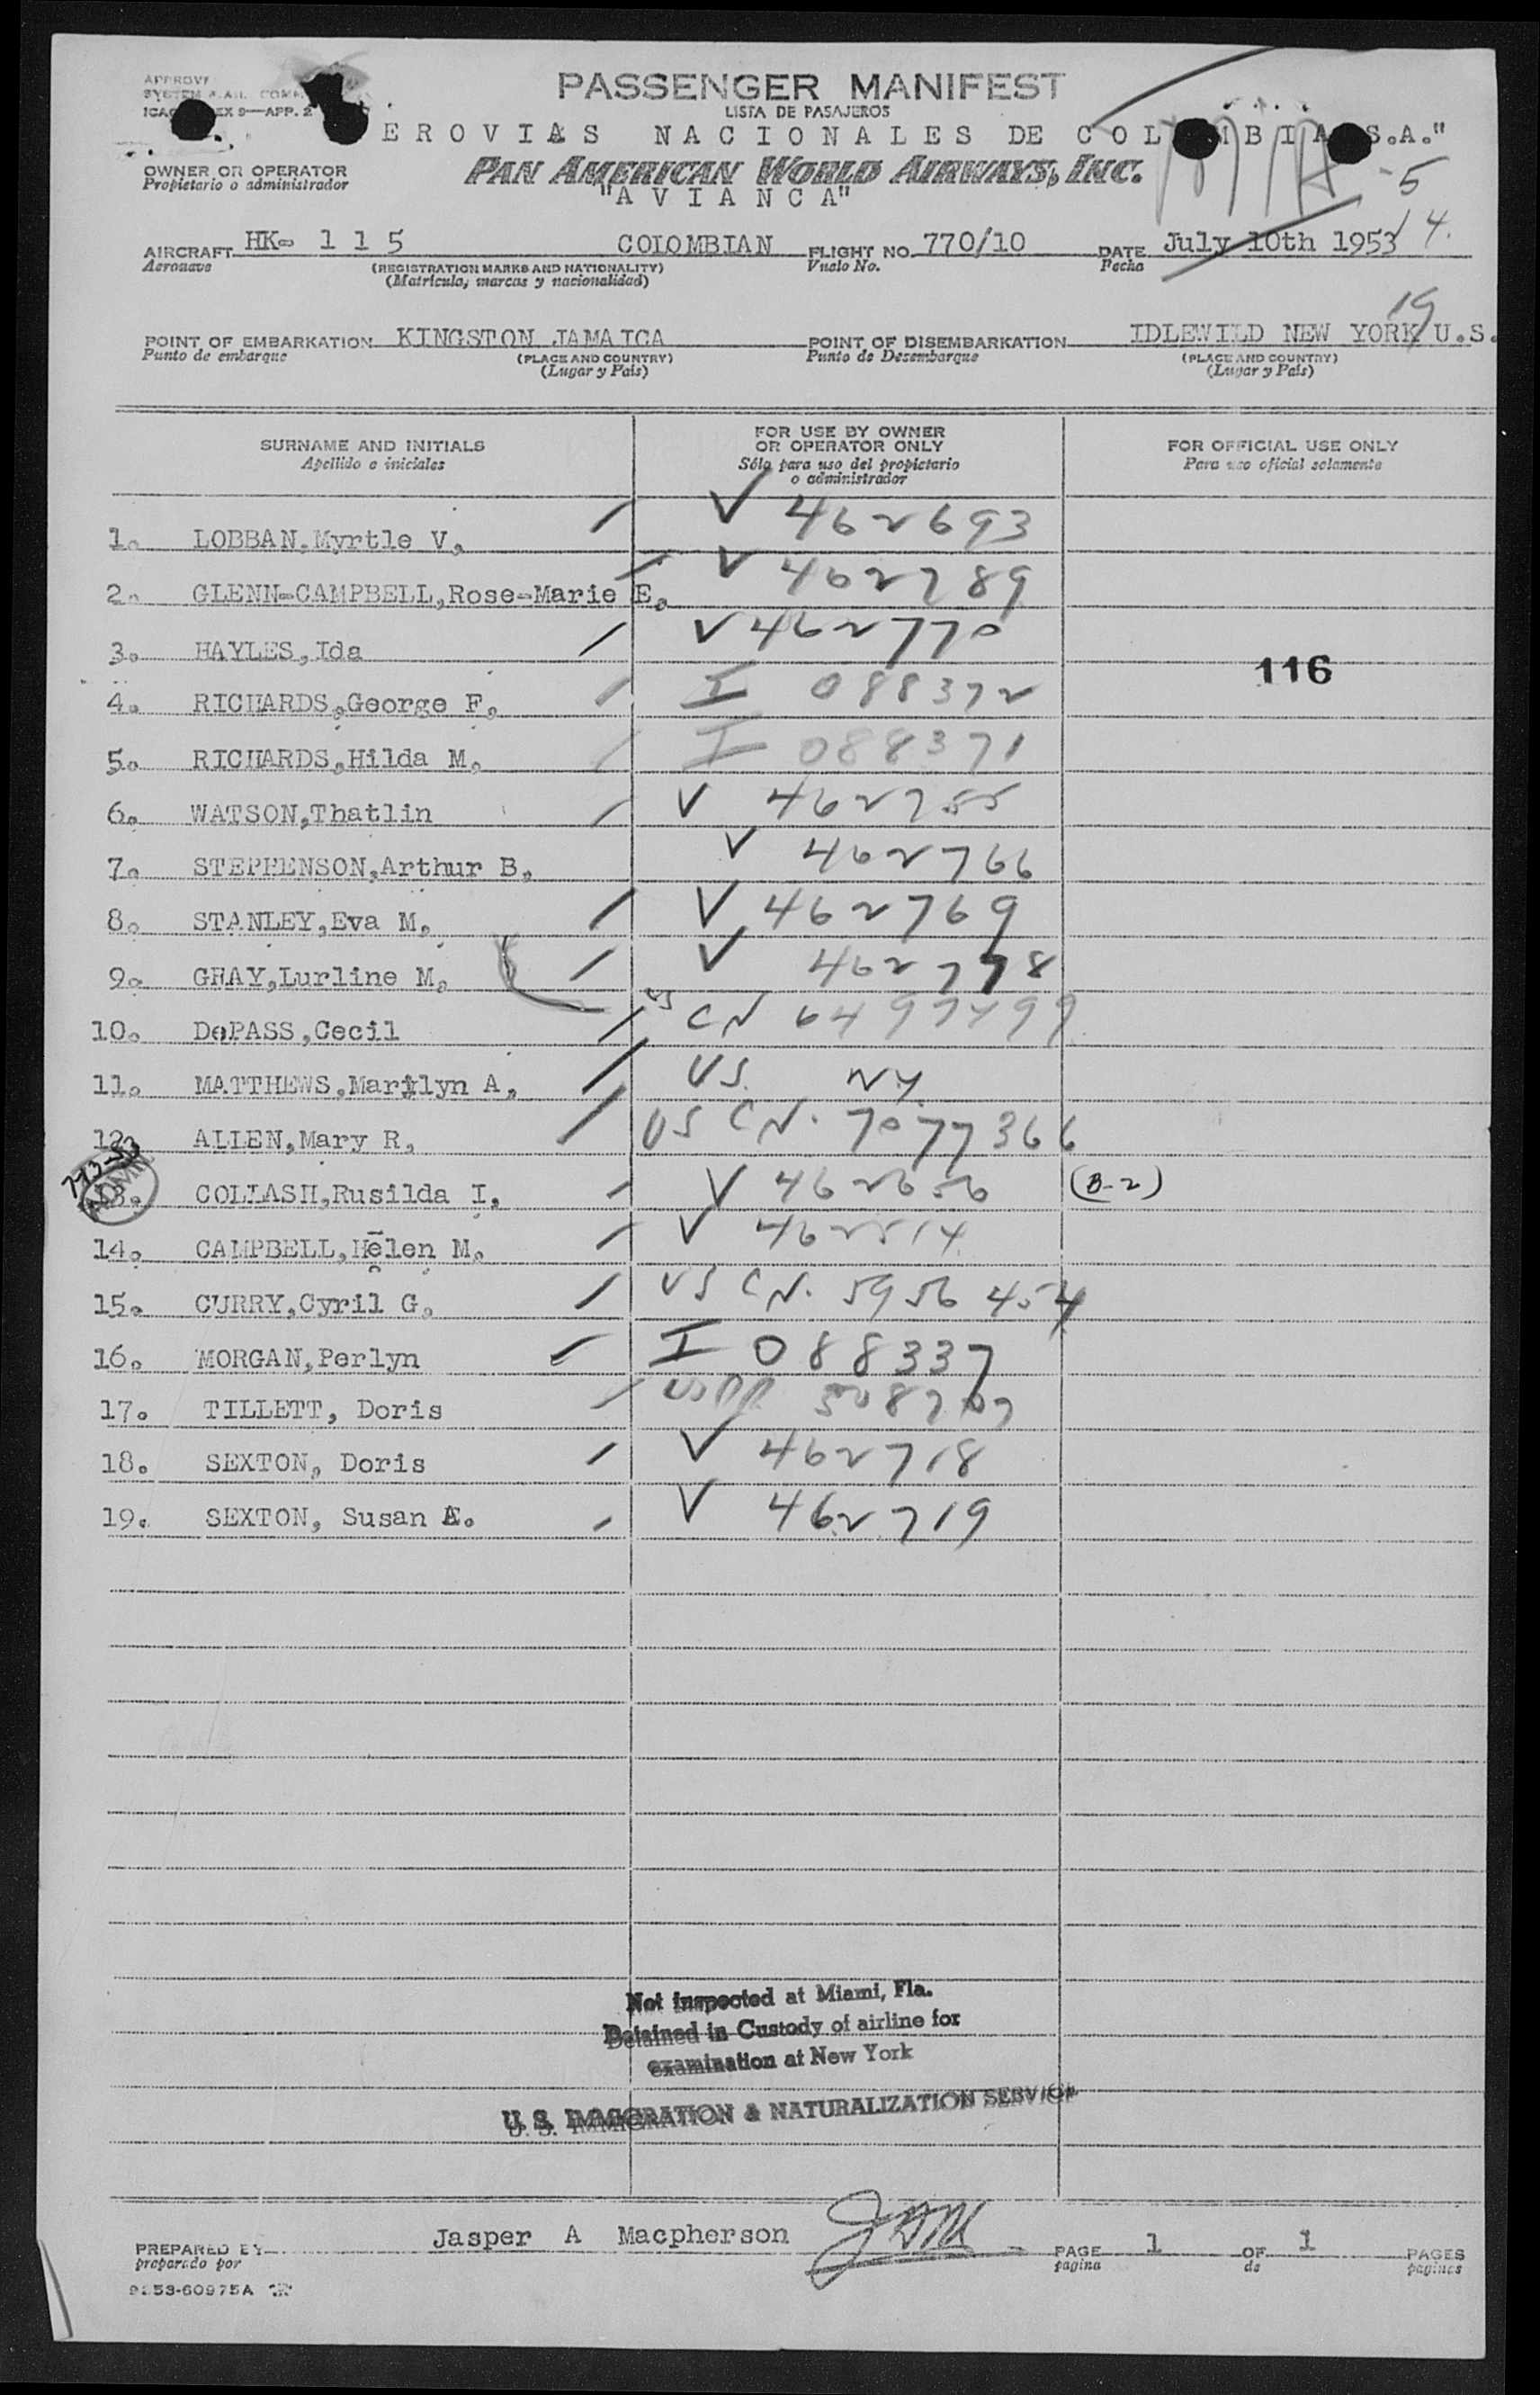 PASSENGER MANIFEST
LISTA DE PASAJEROS
EROVIAS NACIONALES DE COL MBIA S.A."
OWNER OR OPERATOR
Propietario o administrador
PAN AMERICAN WORLD AIRWAYS, INC.
"AVIANCA"
-5
14.
AIRCRAFT HK- 1 1 5 COLOMBIAN FLIGHT NO. 770/10 DATE July 10th 1953
Aeronave (REGISTRATION MARKS AND NATIONALITY) Vuelo No. Fecha
(Matrícula, marcas y nacionalidad)
19
POINT OF EMBARKATION KINGSTON JAMAICA POINT OF DISEMBARKATION IDLEWILD NEW YORK U.S.
Punto de embarque (PLACE AND COUNTRY) Punto de Desembarque (PLACE AND COUNTRY)
(Lugar y País) (Lugar y País)
SURNAME AND INITIALS
Apellido e iniciales
FOR USE BY OWNER
OR OPERATOR ONLY
Sólo para uso del propietario
o administrador
FOR OFFICIAL USE ONLY
Para uso oficial solamente
1. LOBBAN, Myrtle V. V 462693
2. GLENN-CAMPBELL, Rose-Marie E. V 462789
3. HAYLES, Ida V 462770
116
4. RICHARDS, George F. I 088372
5. RICHARDS, Hilda M. I 088371
6. WATSON, Thatlin V 462755
7. STEPHENSON, Arthur B. V 462766
8. STANLEY, Eva M. V 462769
9. GRAY, Lurline M. V 462778
10. DePASS, Cecil US CN 6497499
11. MATTHEWS, Marilyn A. US. NY.
12. ALLEN, Mary R. US CN. 7077366
13. COLLASH, Rusilda I. V 462656 (B-2)
14. CAMPBELL, Helen M. V 462514
15. CURRY, Cyril G. US CN. 5956454
16. MORGAN, Perlyn I 088337
17. TILLETT, Doris
18. SEXTON, Doris V 462718
19. SEXTON, Susan E. V 462719
Not inspected at Miami, Fla.
Detained in Custody of airline for
examination at New York
U. S. IMMIGRATION & NATURALIZATION SERVICE
PREPARED BY Jasper A Macpherson PAGE 1 OF 1 PAGES
preparado por pagina de paginas
9253-60975A